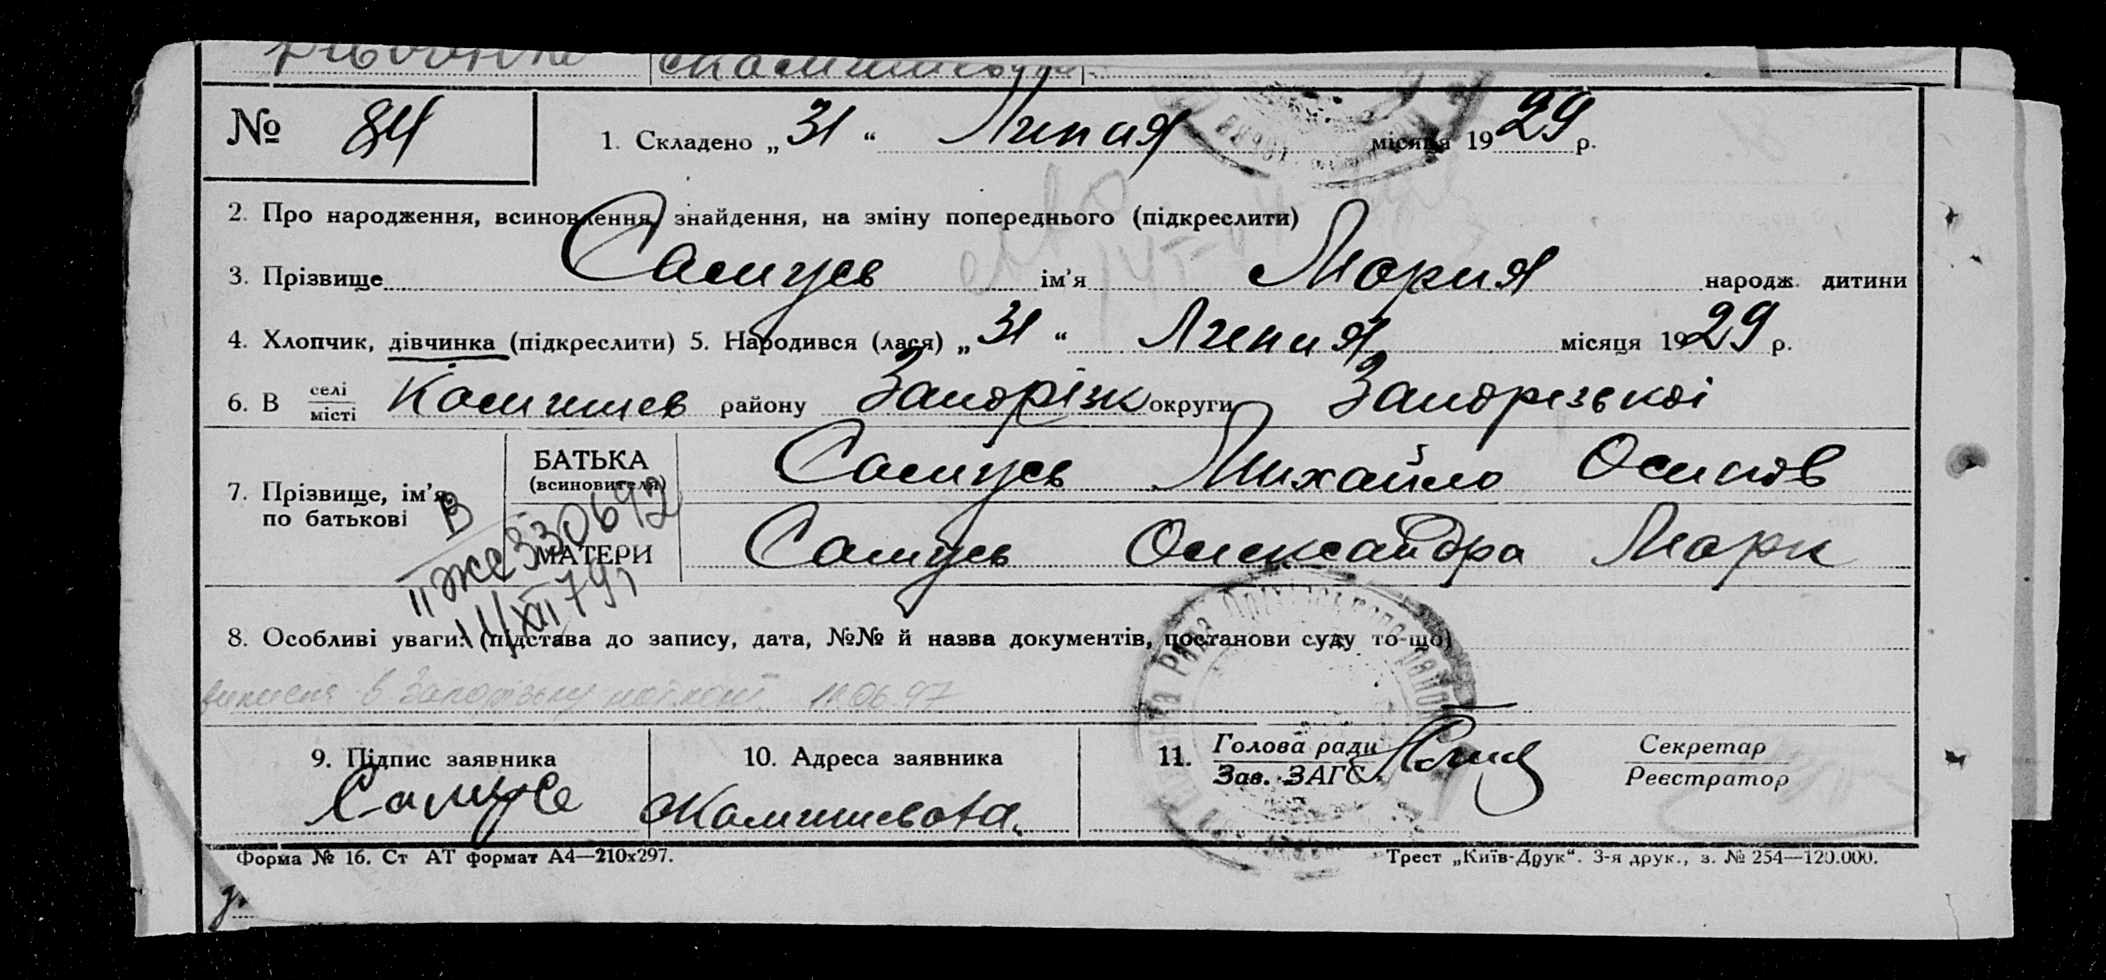 № 84 1. Складено „ 31 “ Липня місяця 1929 р.
2. Про народження, всиновлення, знайдення, на зміну попереднього (підкреслити)
3. Прізвище Самусь ім'я Мария народж. дитини
4. Хлопчик, дівчинка (підкреслити) 5. Народився (лася) „ 31 “ Липня місяця 1929 р.
6. В селі
місті Комишев району Запоріжк округи Запорізькоі
7. Прізвище, ім'я,
по батькові
БАТЬКА
(всиновителя)
Самусь Михайло Осипов
МАТЕРИ Самусь Олександра Марк
В
"жс 330692
8. Особливі уваги: (підстава до запису, дата, №№ й назва документів, постанови суду то-що)
в Запорізьку 11.06.97
9. Підпис заявника
Самусь
10. Адреса заявника
Комишевата
11. Голова ради
Зав. ЗАГС
Секретар
Реєстратор
Форма № 16. Ст АТ формат А4—210х297.
Трест „Київ-Друк“. 3-я друк., з. № 254—120.000.